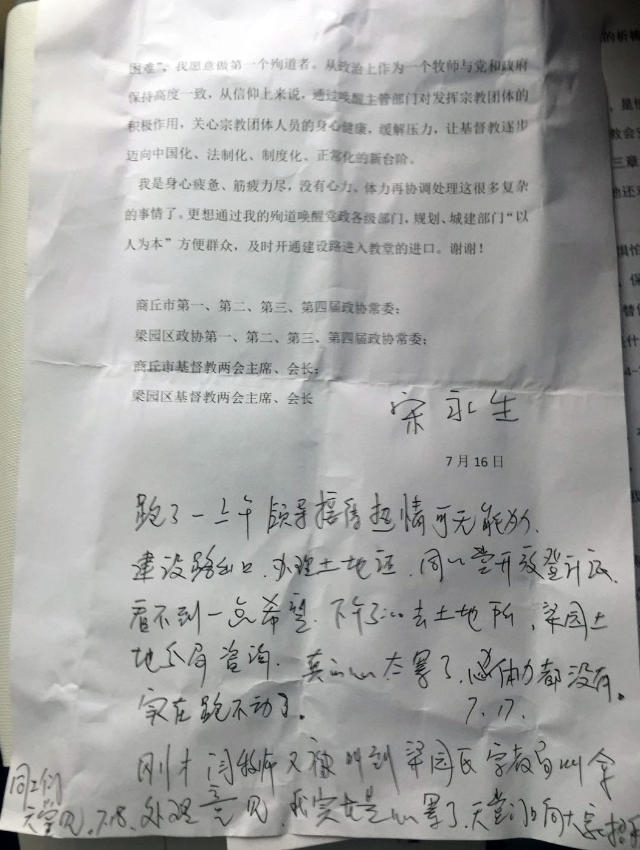 困难”，我愿意做第一个殉道者。从政治上作为一个牧师与党和政府
保持高度一致，从信仰上来说，通过唤醒主管部门对发挥宗教团体的
积极作用，关心宗教团体人员的身心健康，缓解压力，让基督教逐步
迈向中国化、法制化、制度化、正常化的新台阶。
我是身心疲惫、筋疲力尽，没有心力、体力再协调处理这很多复杂
的事情了。更想通过我的殉道唤醒党政各级部门，规划、城建部门“以
人为本”方便群众，及时开通建设路进入教堂的进口。谢谢！
商丘市第一、第二、第三、第四届政协常委；
梁园区政协第一、第二、第三、第四届政协常委；
商丘市基督教两会主席、会长；
梁园区基督教两会主席、会长
宋永生
7月16日
跑了一上午领导接待热情可无能为
建设路出口、办理土地证、同一堂开放登计
看不到一点希望、下午去土地所，梁园土
地分局咨询。真的心太累了，心体力都没有。
实在跑不动了。 7.17.
刚才闫牧师又被叫到梁园民宗教局叫拿
处理意见，我实在是心累了，天堂门口向大家招手
同工们
天堂见，7.18.